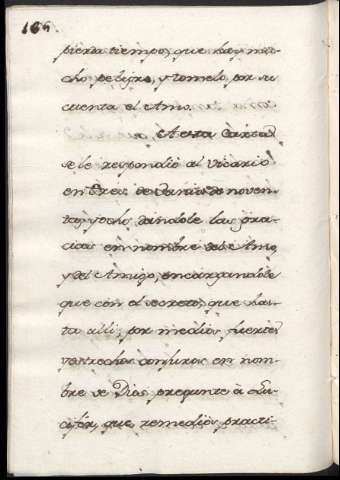 166.
pierda tiempo, que hay mu-
cho peligro, y tomelo por su
cuenta el Amo.
A esta Carta
se le respondió al Vicario
en treis de de noven-
ta, y ocho dandole las gra-
cias en nombre del Amo,
y del Amigo, encargandole
que con el secreto, que has-
ta alli, por medios fuertes
y estrechos conjuros en nom-
bre de Dios pregunte à Lu-
cifer, que remedios practi-